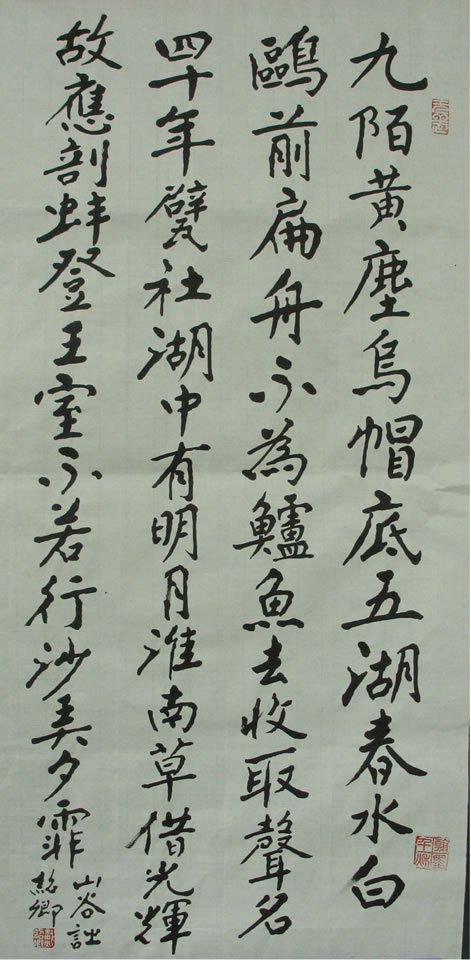 九陌黄塵烏帽底五湖春水白
鷗前扁舟不為鱸魚去收取聲名
四十年甓社湖中有明月淮南草借光輝
故應剖蚌登王室不若行沙弄夕霏
山谷
卿